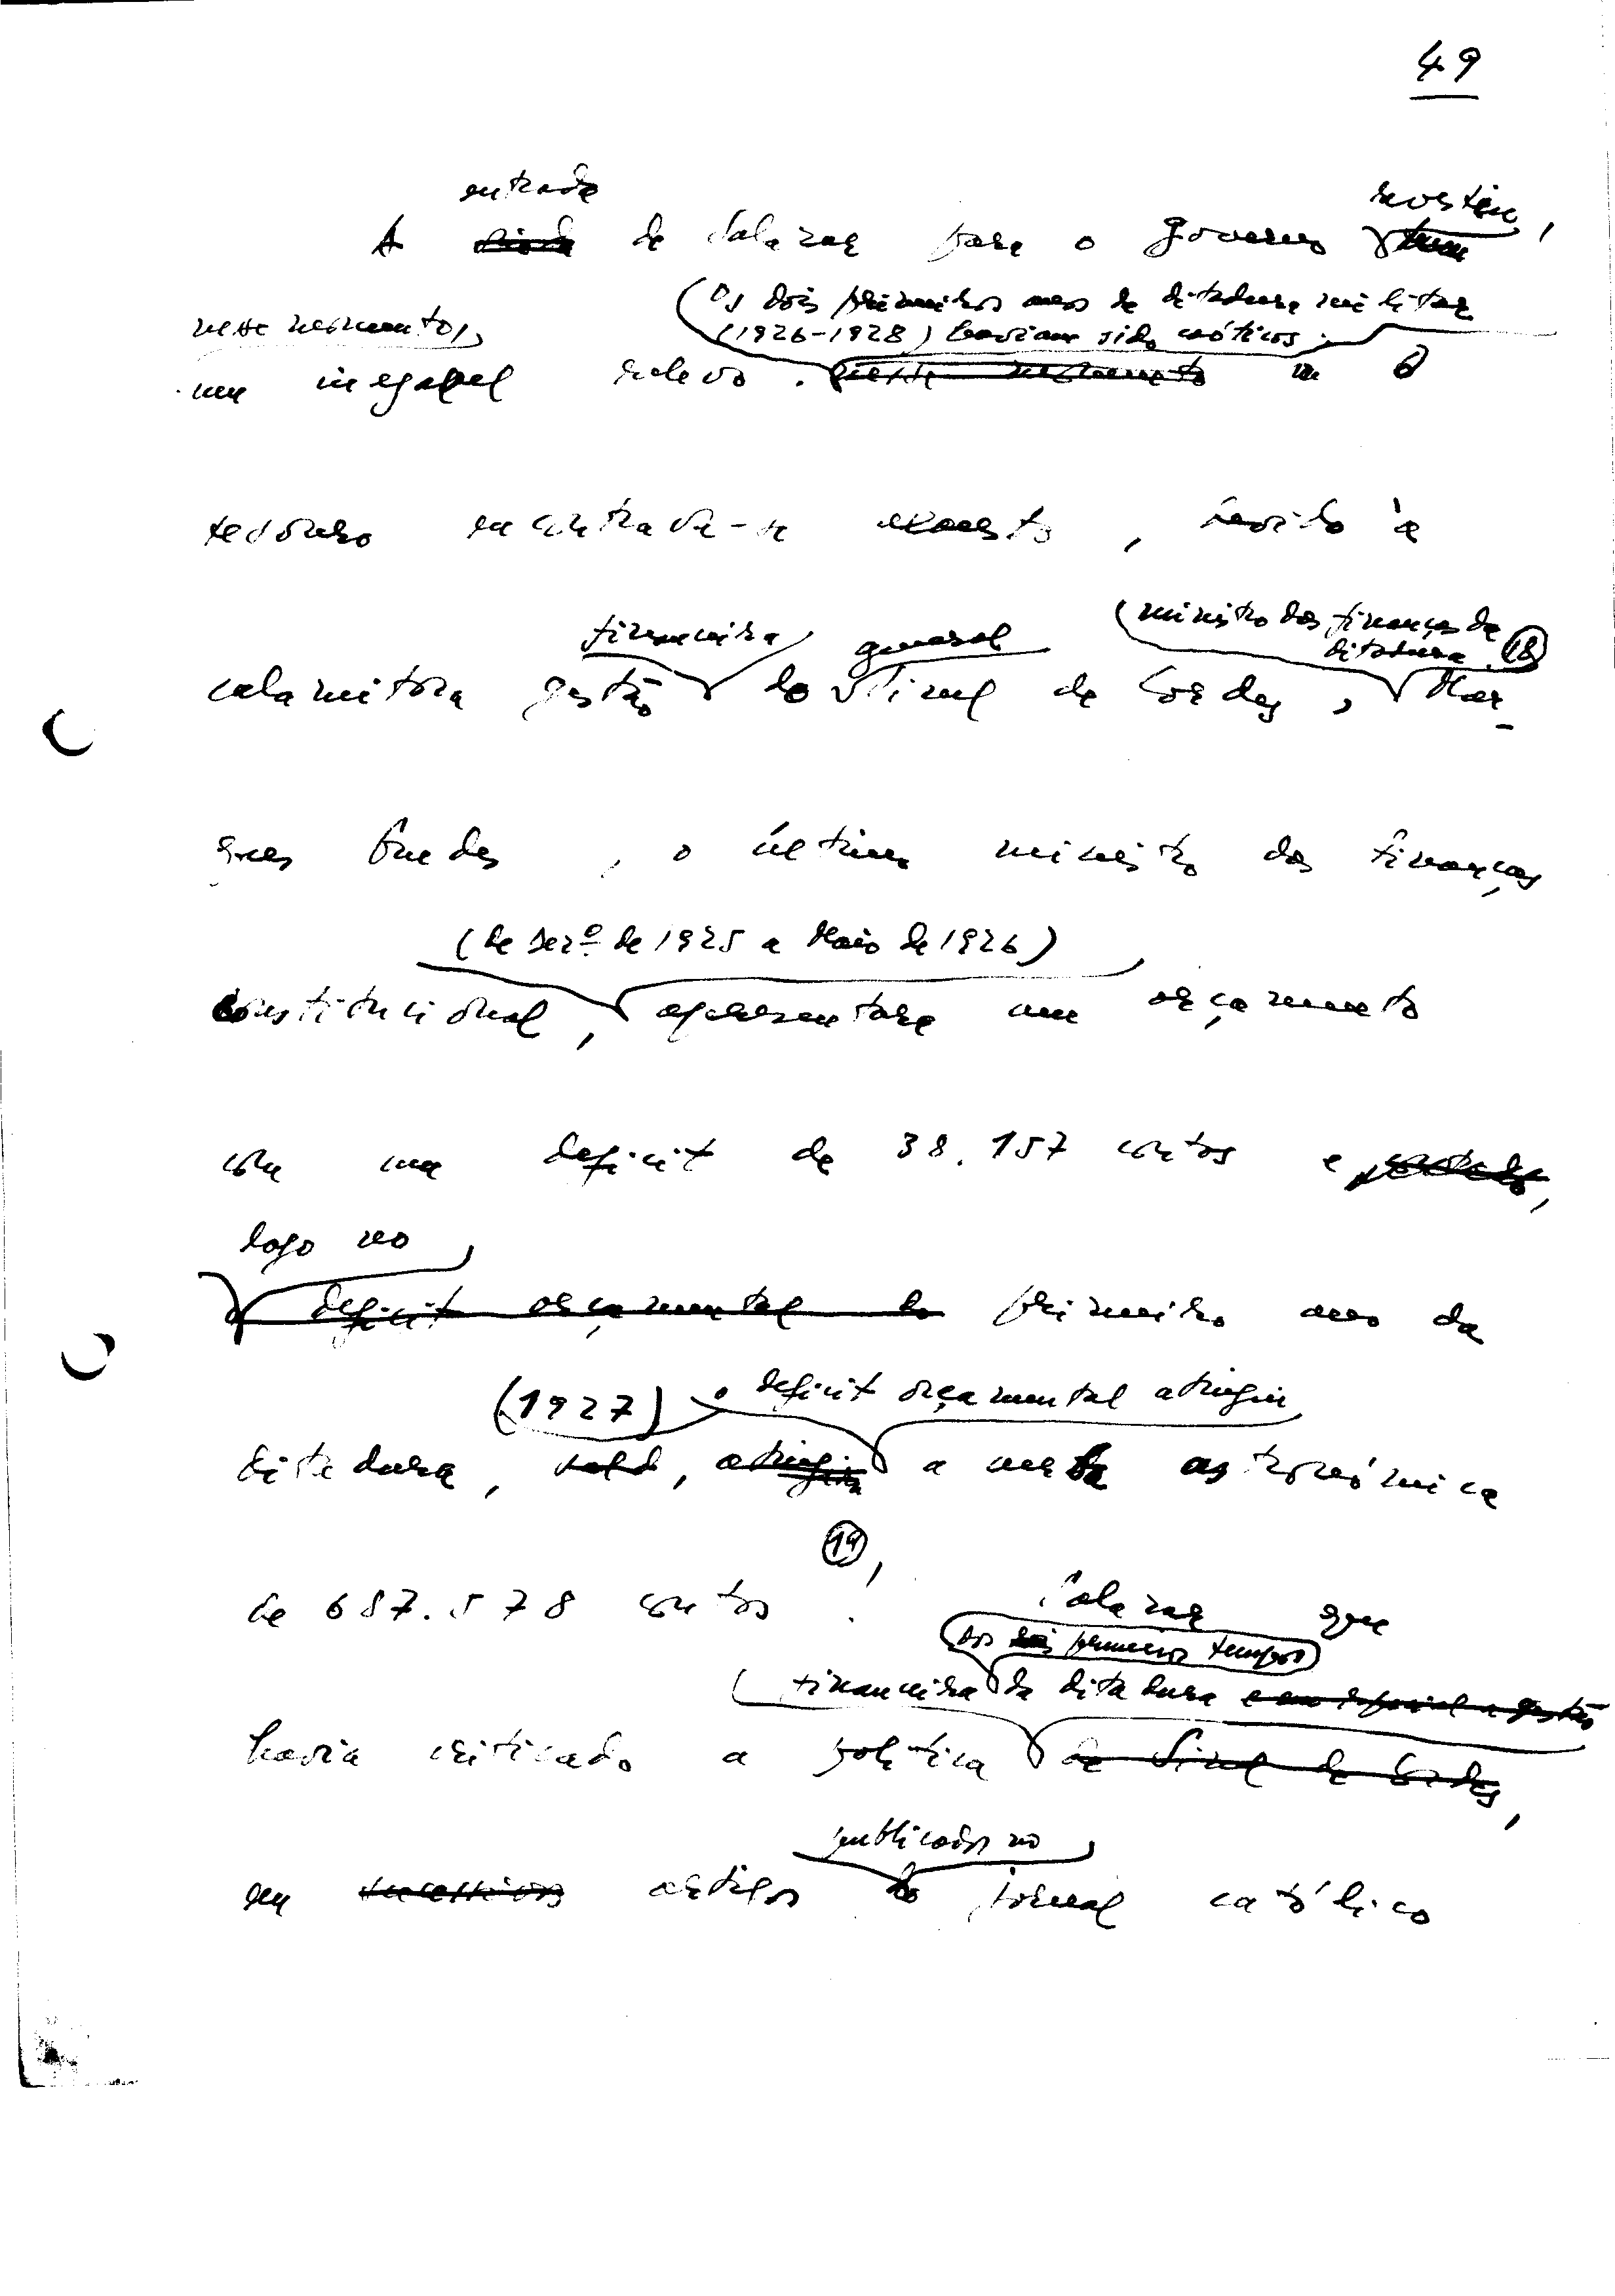 49
entrada revestiu,
A de Salazar para o governo
neste momento, (Os dois primeiros anos da ditadura militar
(1926-1928) haviam sido caóticos.
um inegável relevo. O
tesouro encontrava-se exausto, devido à
financeira general (ministro das finanças da
ditadura 18)
calamitosa gestão do Sinel de Cordes, Mar-
ques Guedes, o último ministro das finanças
(de Dez.º de 1925 a Maio de 1926)
constitucional, apresentara um orçamento
com um deficit de 38.157 contos e
logo no
deficit orçamental do primeiro ano da
(1927) o deficit orçamental atingiu
ditadura, , atingia a verba astronómica
19,
de 687.578 contos. Salazar que
dos primeiros tempos
financeira da ditadura e em especial a gestão
havia criticado a política de Sinel de Cordes,
publicados no
em sucessivos artigos do jornal católico